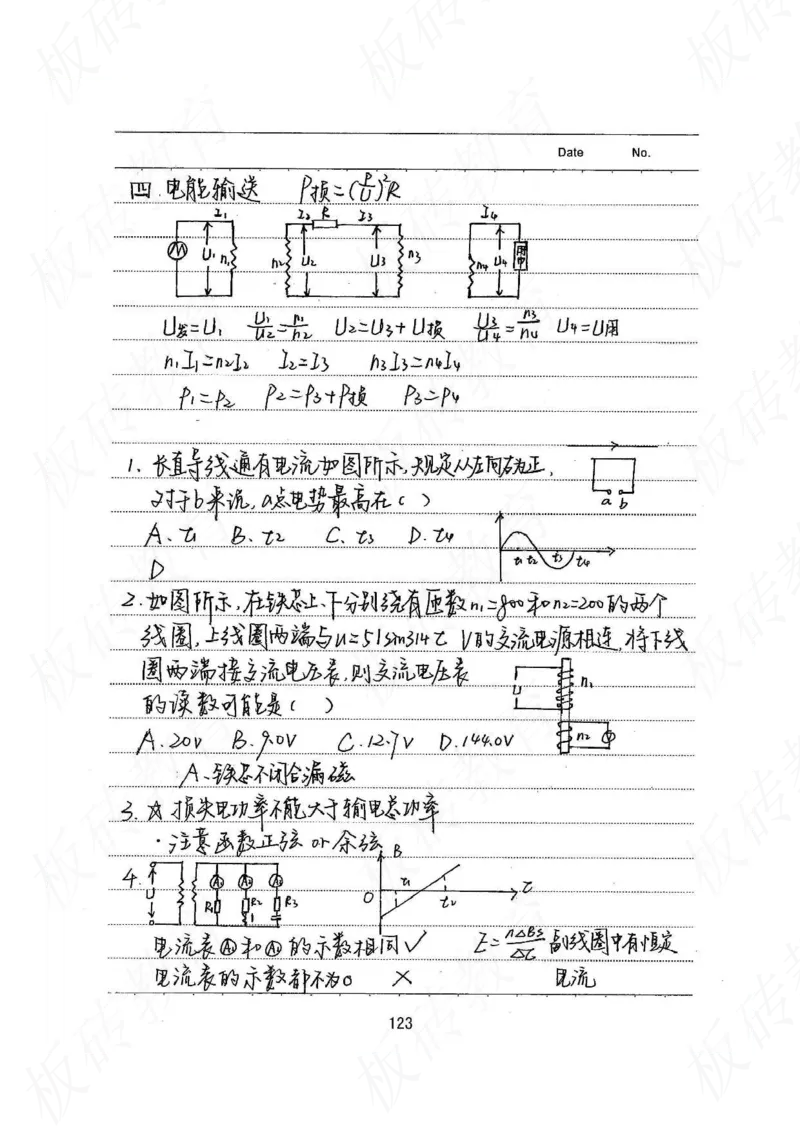 Date No.
四.电能输送 P损=(P/U)²R
I₁ I₂ R I₃ I₄
U₁ n₁ n₂ U₂ U₃ n₃ n₄ U₄ 用电
U发=U₁ U₁/U₂=n₁/n₂ U₂=U₃+U损 U₃/U₄=n₃/n₄ U₄=U用
n₁I₁=n₂I₂ I₂=I₃ n₃I₃=n₄I₄
P₁=P₂ P₂=P₃+P损 P₃=P₄
1.长直导线通有电流如图所示,规定从左向右为正,
对于b来说,a点电势最高在( )
a b
A、t₁ B、t₂ C、t₃ D、t₄
t₁ t₂ t₃ t₄
D
2.如图所示,在铁芯上、下分别绕有匝数n₁=800和n₂=200的两个
线圈,上线圈两端与u=51sin314t V的交流电源相连,将下线
圈两端接交流电压表,则交流电压表
的读数可能是( )
U n₁ n₂
A.2.0V B.9.0V C.12.7V D.144.0V
A、铁芯不闭合漏磁
3.☆损失电功率不能大于输电总功率
·注意函数正弦 or 余弦
4.
U A₁ A₂ A₃ R₁ R₂ R₃
B O t₁ t₂ t
的示数相同✓ E=nΔBS/Δt 副线圈中有恒定
电流表的示数都不为0 × 电流
123
板砖教育